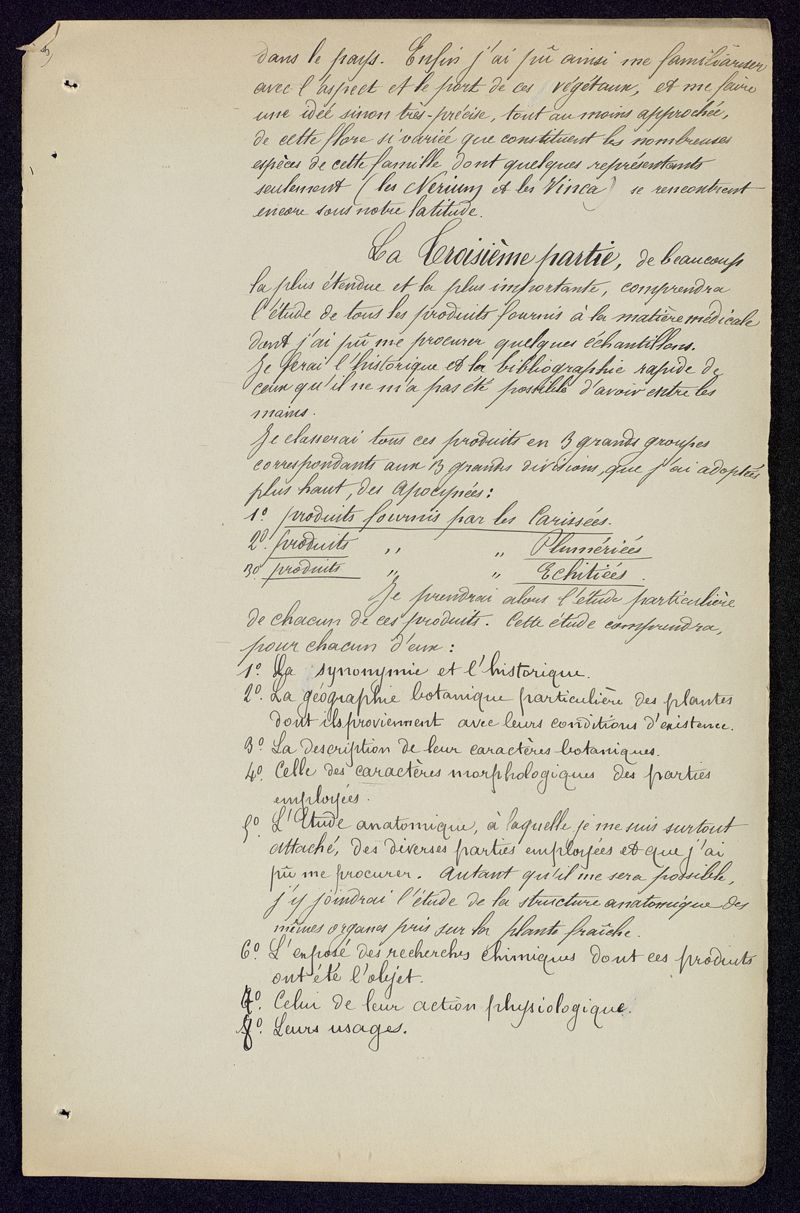 dans le pays. Enfin j'ai pû ainsi me familiariser
avec l'aspect et le port de ces végétaux, et me faire
une idée sinon très-précise, tout au moins approchée,
de cette flore si variée que constituent les nombreuses
espèces de cette famille dont quelques représentants
seulement (les Nerium et les Vinca) se rencontrent
encore sous notre latitude.
La Troisième partie, de beaucoup
la plus étendue et la plus importante, comprendra
l'étude de tous les produits fournis à la matière médicale
dont j'ai pû me procurer quelques échantillons.
Je ferai l'historique et la bibliographie rapide de
ceux qu'il ne m'a pas été possible d'avoir entre les
mains.
Je classerai tous ces produits en 3 grands groupes
correspondants aux 3 grandes divisions, que j'ai adoptées
plus haut, des Apocynées:
1º produits fournis par les Carissées.
2º. produits " " Plumériées
3º produits " " Echitiées.
Je prendrai alors l'étude particulière
de chacun de ces produits. Cette étude comprendra,
pour chacun d'eux:
1º La synonymie et l'historique.
2º. La géographie botanique particulière des plantes
dont ils proviennent avec leurs conditions d'existence.
3º La description de leur caractères botaniques.
4º. Celle des caractères morphologiques des parties
employées.
5º. L'Etude anatomique, à laquelle je me suis surtout
attaché, des diverses parties employées et que j'ai
pû me procurer. Autant qu'il me sera possible,
j'y joindrai l'étude de la structure anatomique des
mêmes organes pris sur la plante fraîche.
6º. L'exposé des recherches chimiques dont ces produits
ont été l'objet.
7º. Celui de leur action physiologique.
º. Leurs usages.